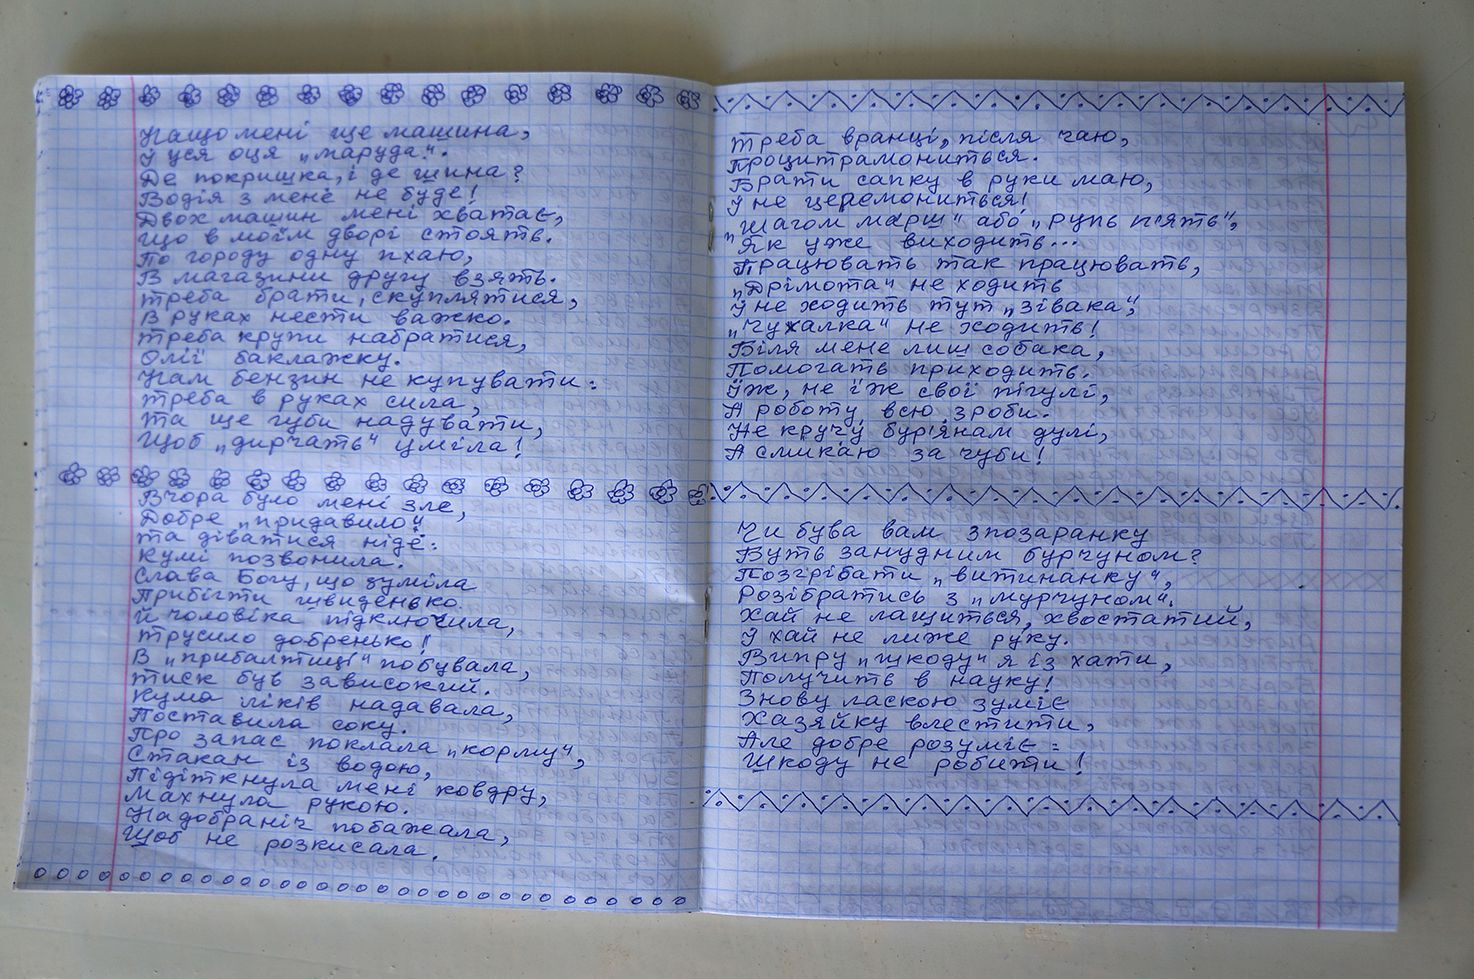 Нащо мені ще машина,
Й уся оця „маруда".
Де покришка, і де шина?
Водія з мене не буде!
Двох машин мені хватає,
Що в моїм дворі стоять.
По городу одну пхаю,
В магазини другу взять.
Треба брати, скуплятися,
В руках нести важко.
Треба крупи набратися,
Олії баклажку.
Нам бензин не купувати:
Треба в руках сила,
Та ще губи надувати,
Щоб „дирчать" уміла!
Вчора було мені зле,
Добре „придавило".
Та діватися ніде:
Кумі позвонила.
Слава Богу, що зуміла
Прибігти швиденько.
Й чоловіка підключила,
Трусило добренько!
В „прибалтиці" побувала,
Тиск був зависокий.
Кума ліків надавала,
Поставила соку.
Про запас поклала „корму",
Стакан із водою,
Підіткнула мені ковдру,
Махнула рукою.
Надобраніч побажала,
Щоб не розкисала.
Треба вранці, після чаю,
Процитрамониться.
Брати сапку в руки маю,
Й не церемониться!
„Шагом марш" або „рупь п'ять",
Як уже виходить...
Працювать так працювать,
„Дрімота" не ходить
Й не ходить тут „зівака",
„Чухалка" не ходить!
Біля мене лиш собака,
Помогать приходить.
Їж, не їж свої пігулі,
А роботу всю зроби.
Не кручу бур'янам дулі,
А смикаю за чуби!
Чи бува вам зпозаранку
Буть занудним бурчуном?
Позгрібати „витинанку",
Розібратись з „мурчуном".
Хай не лащиться, хвостатий,
Й хай не лиже руку.
Випру „шкоду" я із хати,
Получить в науку!
Знову ласкою зуміє
Хазяйку влестити,
Але добре розуміє:
Шкоду не робити!